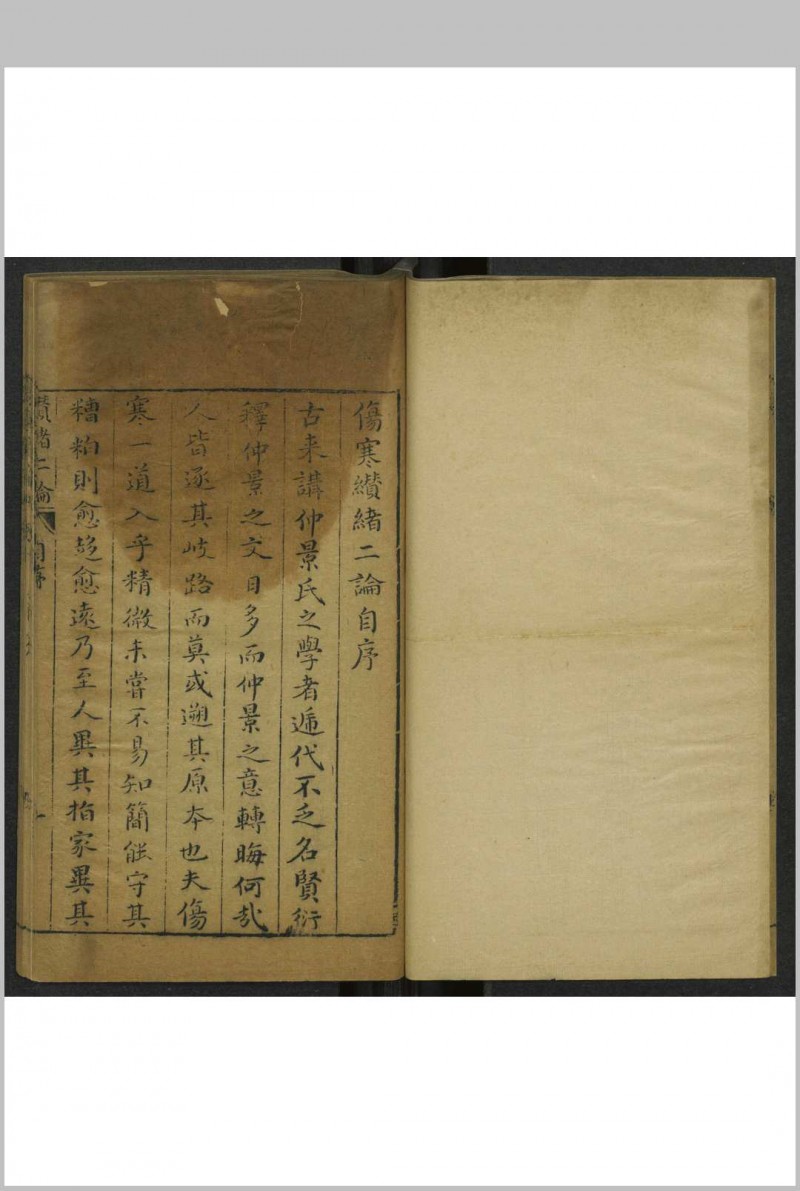 傷寒纘緒二論自序
古来講仲景氏之學者遞代不乏名賢衍
釋仲景之文日多而仲景之意轉晦何哉
人皆逐其岐路而莫或遡其原本也夫傷
寒一道入乎精微未嘗不易知簡能守其
糟粕則愈趍愈遠乃至人異其指家異其
纘緒二論 自序 一